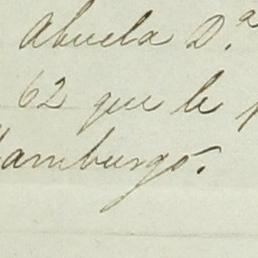 Abuela D.ª
62 que le
Hamburgo.